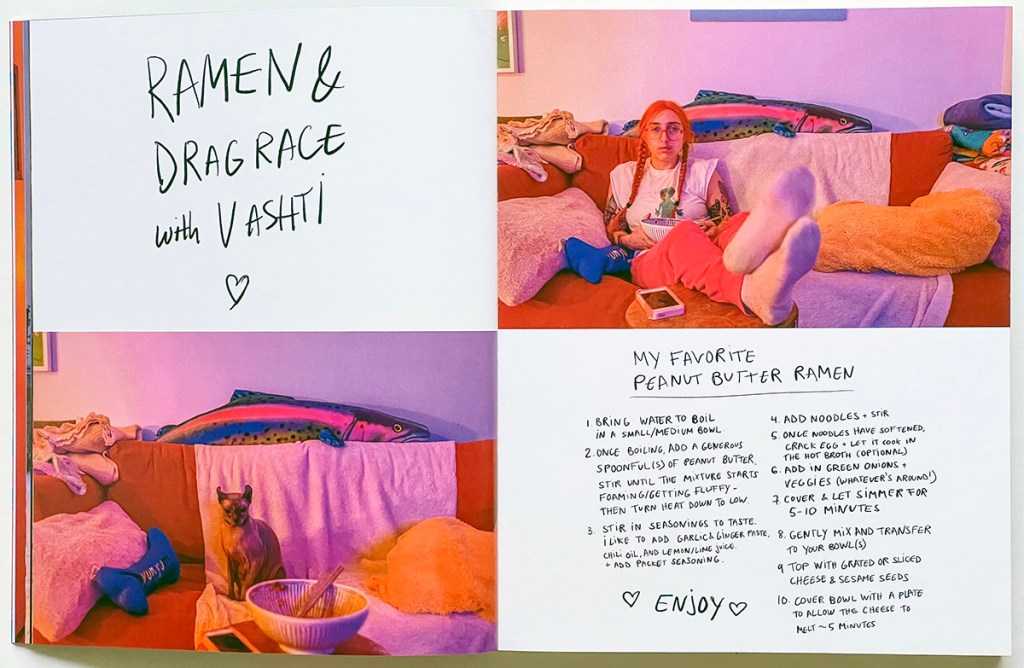 RAMEN &
DRAG RACE
with VASHTI
MY FAVORITE
PEANUT BUTTER RAMEN
1. BRING WATER TO BOIL
IN A SMALL/MEDIUM BOWL.
2. ONCE BOILING, ADD A GENEROUS
SPOONFUL(S) OF PEANUT BUTTER,
STIR UNTIL THE MIXTURE STARTS
FOAMING/GETTING FLUFFY -
THEN TURN HEAT DOWN TO LOW.
3. STIR IN SEASONINGS TO TASTE.
i LIKE TO ADD GARLIC & GINGER PASTE,
CHILI OIL, AND LEMON/LIME JUICE.
+ ADD PACKET SEASONING.
4. ADD NOODLES + STIR
5. ONCE NOODLES HAVE SOFTENED,
CRACK EGG + LET IT COOK IN
THE HOT BROTH (OPTIONAL)
6. ADD IN GREEN ONIONS +
VEGGIES (WHATEVER'S AROUND!)
7. COVER & LET SIMMER FOR
5-10 MINUTES
8. GENTLY MIX AND TRANSFER
TO YOUR BOWL(S)
9 TOP WITH GRATED OR SLICED
CHEESE & SESAME SEEDS
10. COVER BOWL WITH A PLATE
TO ALLOW THE CHEESE TO
MELT ~ 5 MINUTES
ENJOY